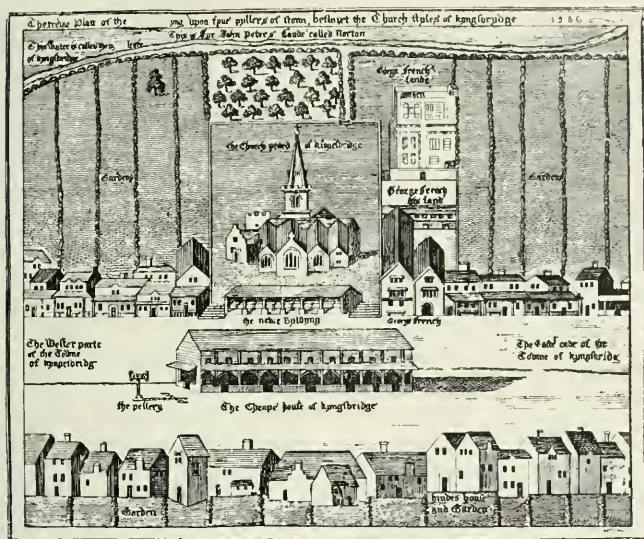 Plott of the yng upon fyve pyllers of stonn, bethwxt the Church styles of kyngsbrydge 1586
Thys ys Syr John Petres Lande called Norton
Thys water is called the leete
of kyngsbridge
George French
lande
the Church yeard of kyngesbridge
Gardens
Gardens
George French
his land
the newe Buldyng
George French
The Wester parte
of the Towne
of kyngesbridg
The Easte ende of the
Towne of kyngsbridg
the pellery
The Cheape house of kyngsbridge
Garden
hindes house
and Garden